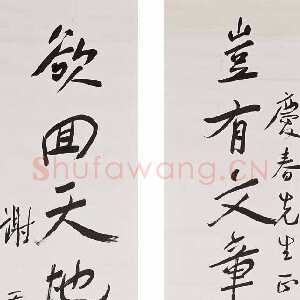 慶春先生正
豈有文章
欲回天地
謝
Shufawang.CN